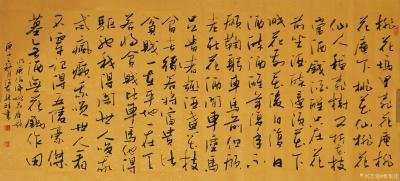 桃花塢里桃花庵桃
花庵下桃花仙桃花
仙人種桃樹又折花枝
當酒錢酒醒只在花
前坐酒醉還須花下
眠花前花後日復日
酒醉酒醒年復年不
願鞠躬車馬前但願
老死花酒間車塵馬
足貴者趣酒盞花枝
貧者緣若將富貴比
貧賤一在平地一在天
若將貧賤比車馬他得
驅馳我得閑世人笑
我忒瘋癲我笑世人看
不穿記得五陵豪傑
墓無酒無花鋤作田